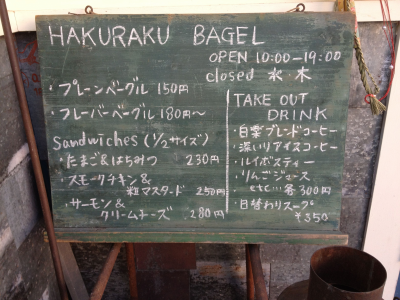 HAKURAKU BAGEL
OPEN 10:00-19:00
closed 水・木
・プレーンベーグル 150円
・フレーバーベーグル 180円〜
Sandwiches (1/2サイズ)
・たまご&はちみつ 230円
・スモークチキン&
粒マスタード 250円
・サーモン&
クリームチーズ 280円
TAKE OUT
DRINK
・白楽ブレンドコーヒー
・深いりアイスコーヒー
・ルイボスティー
・りんごジュース
etc...各300円
・日替わりスープ
¥350